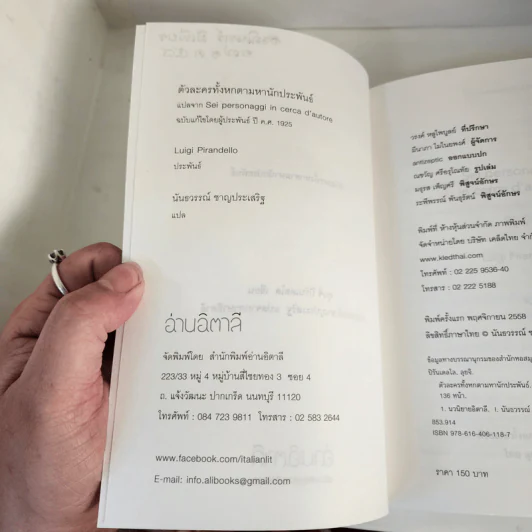 ตัวละครทั้งหกตามหานักประพันธ์
แปลจาก Sei personaggi in cerca d'autore
ฉบับแก้ไขโดยผู้ประพันธ์ ปี ค.ศ. 1925
Luigi Pirandello
ประพันธ์
นันธวรรณ์ ชาญประเสริฐ
แปล
อ่านอิตาลี
จัดพิมพ์โดย สำนักพิมพ์อ่านอิตาลี
223/33 หมู่ 4 หมู่บ้านสี่ไชยทอง 3 ซอย 4
ถ. แจ้งวัฒนะ ปากเกร็ด นนทบุรี 11120
โทรศัพท์ : 084 723 9811 โทรสาร : 02 583 2644
www.facebook.com/italianlit
E-mail: info.alibooks@gmail.com
ที่ปรึกษา
ผู้จัดการ
antizeptic ออกแบบปก
รูปเล่ม
พิสูจน์อักษร
พิสูจน์อักษร
พิมพ์ที่ ห้างหุ้นส่วนจำกัด ภาพพิมพ์
จัดจำหน่ายโดย บริษัท เคล็ดไทย
www.kledthai.com
โทรศัพท์ : 02 225 9536-40
โทรสาร : 02 222 5188
พิมพ์ครั้งแรก พฤศจิกายน 2558
ลิขสิทธิ์ภาษาไทย © นันธวรรณ์
ข้อมูลทางบรรณานุกรมของสำนักหอสมุ
ปีรันเดลโล, ลุยจิ.
ตัวละครทั้งหกตามหานักประพันธ์.
136 หน้า.
1. นวนิยายอิตาลี. I. นันธวรรณ์
853.914
ISBN 978-616-406-118-7
ราคา 150 บาท